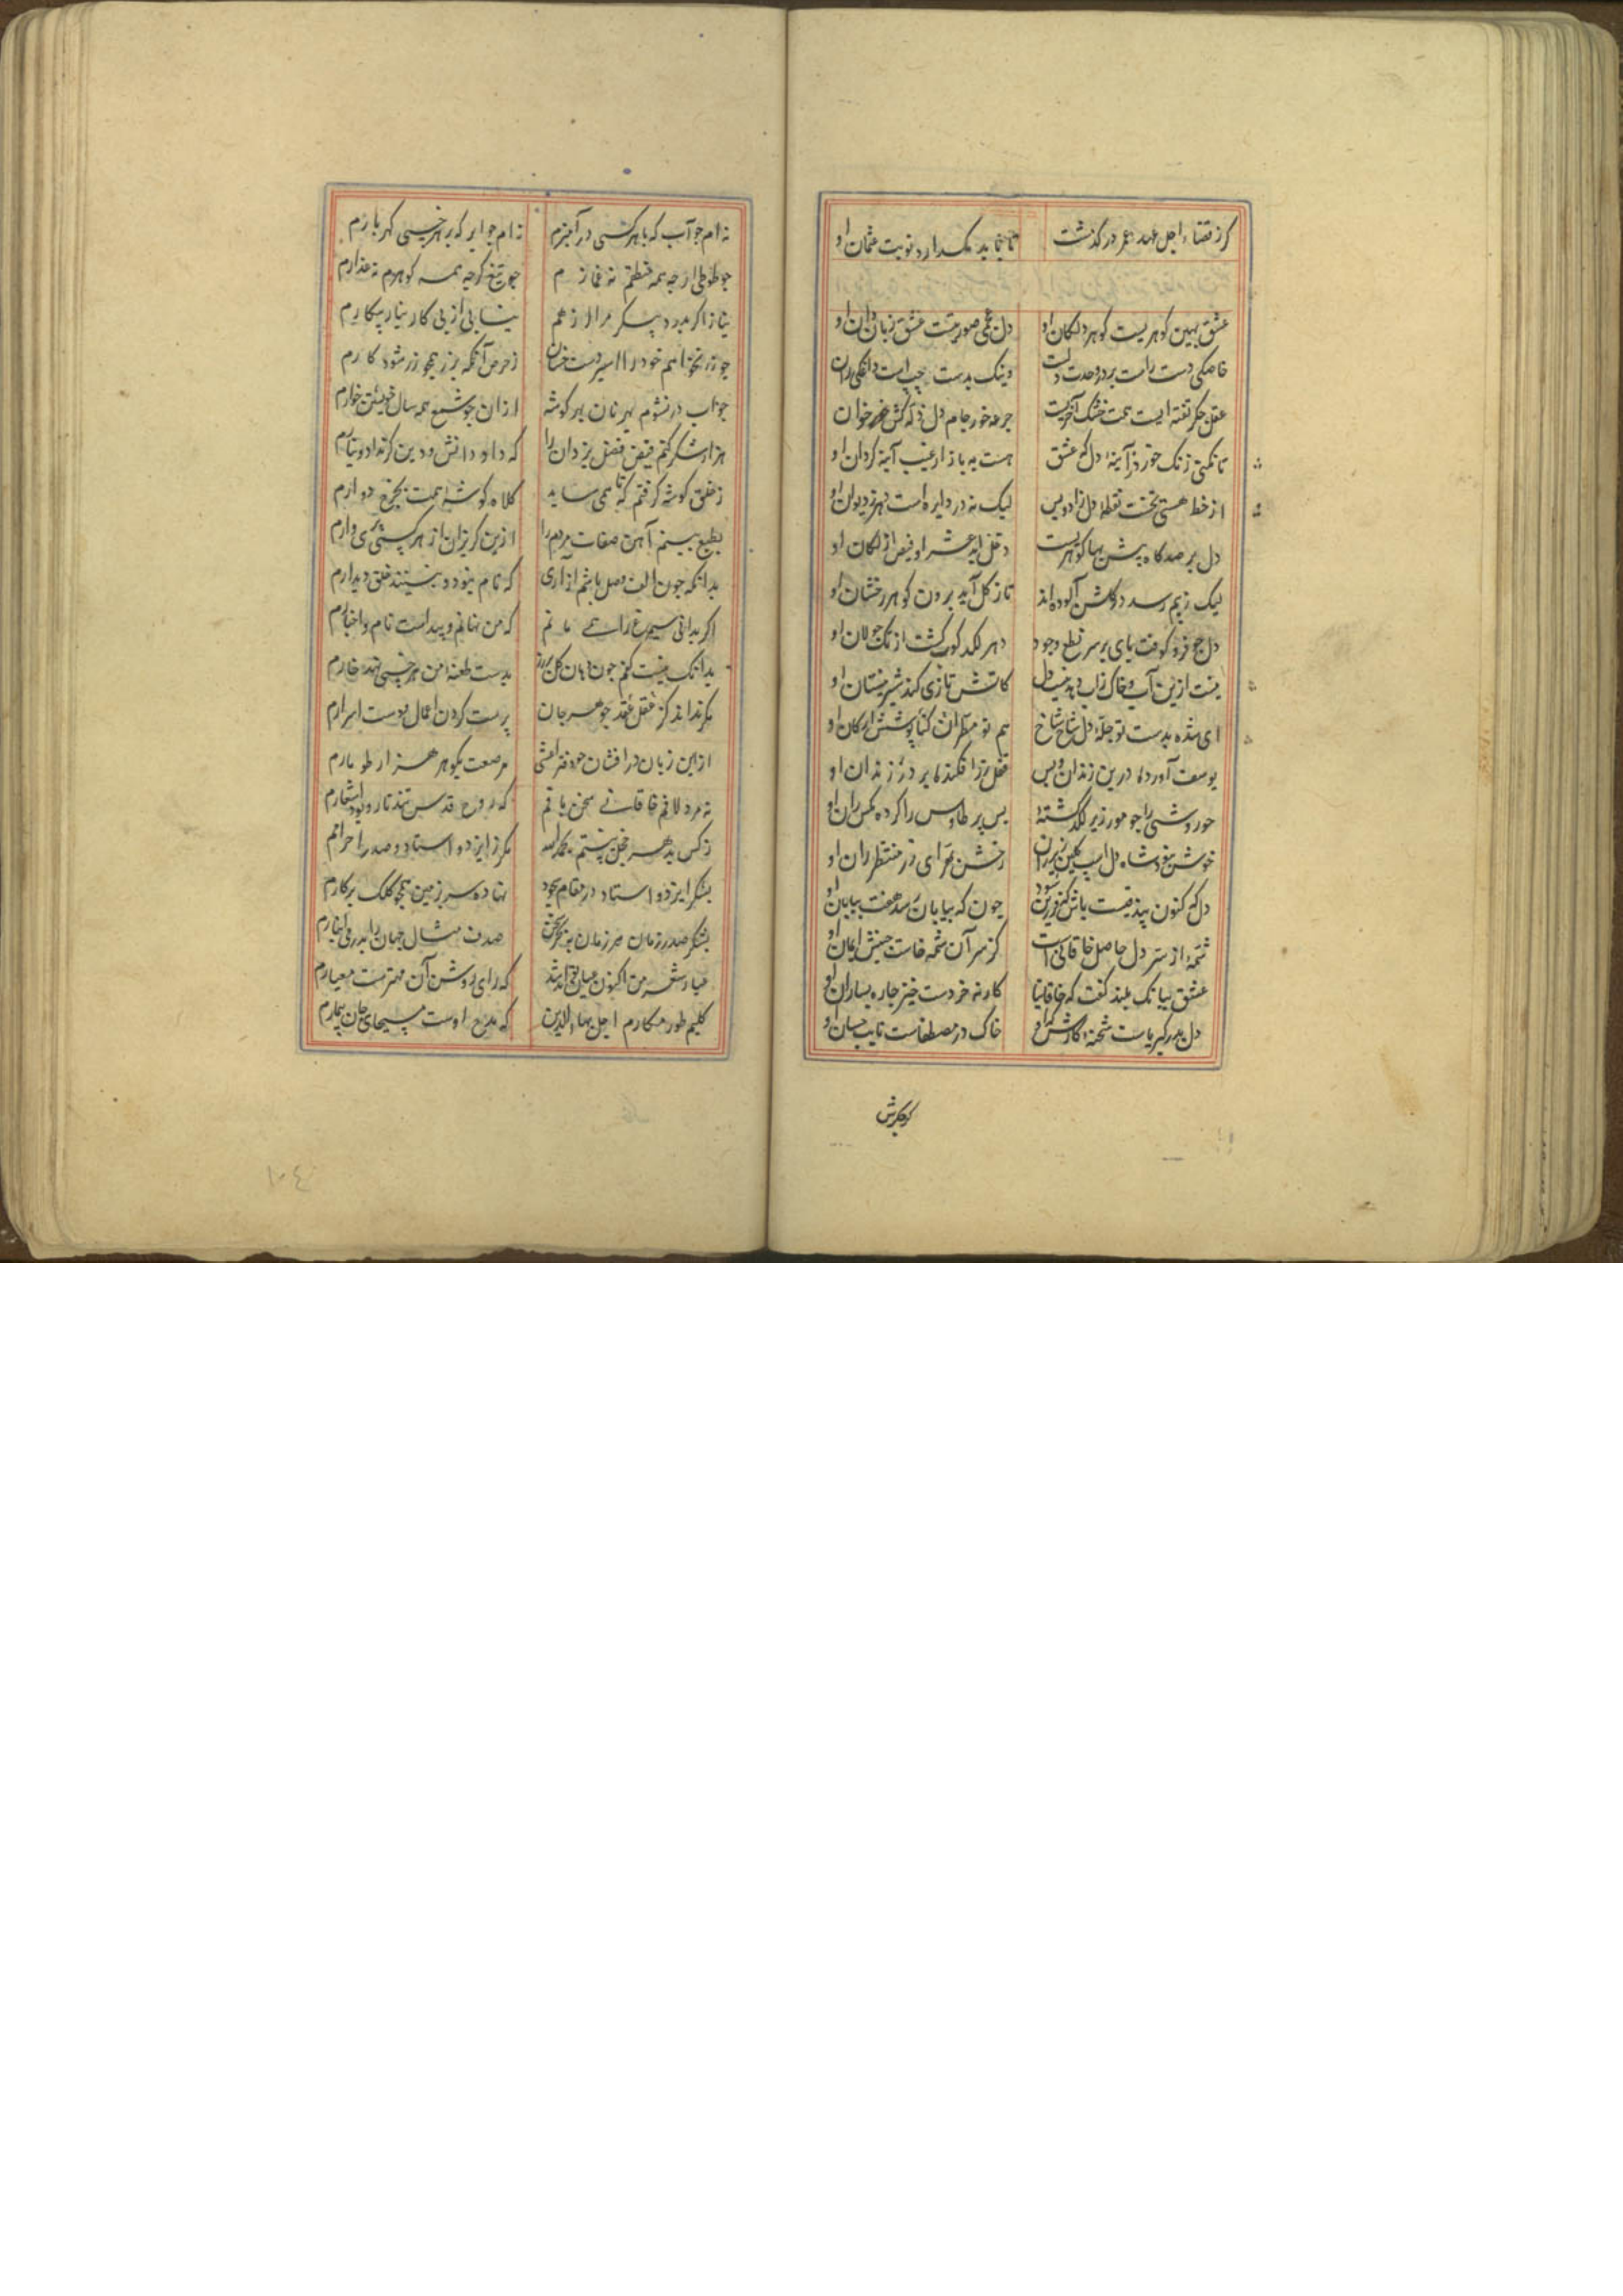 کر قضاء اجل عهد عمر در کذشت تا نماید مکدارد نوبت عثمان او
عشق بهین کوهریست کوهر دل کان او دل عجمی صورتست عشق زبان دان او
خاصکی دست راست بر در وحدت دلست وینک بدست چپ است
عقل جکر تفته ایست همت خشک آخریست جرعه خور جام دل
تا نکنی زنک خورد آینه دل که عشق هست به بازار غیب آینه کردان او
از خط هستی نخست نقطه دل زاد وبس لیک نه در دایره است دیوان او
دل بر صدکاه پیش بها کوهریست دخل ابد عشر او فیض ازل کان او
لیک آلوده اند تا ز کل آید برون کوهر رخشان او
دل جو فرو کوفت پای بر سر نطع وجود دهر لکد کوب کشت از تک جولان او
نیست ازین آب وخاک دل کاتش بازی کند شیر نیستان او
ای شده بدست تو حله دل شاخ شاخ هم تو مطران کن پوشش ارکان او
یوسف آورده درین زندان وپس قفل زر افکنده بر در زندان او
حور وشی را جو مور زیر لکد کشته بس پر طاوس را کرده مکس ران او
خوش نبود شاه دل اسب کلین زیر ران رخش بهرای زر منتظر ران او
دل که کنون بیدقیست باش که فرزین شود چون که بپایان رسد هفت بیابان او
شحنه از سر دل حاصل خاقانی است کز سر آن شحنه خاست جنبش ایمان او
عشق ببانک بلند کفت که خاقانیا کار نه خردست خیز چاره بساز آن او
دل بدر کبریاست شحنه کارش کم او خاک در مصطفاست نایب حسان او
نه ام جو آب که با هر کسی درآمیزم نه ام جو ابر که بر هر خسی کهر بارم
جو طوطی ار چه همه منطقم نه غمازم جو تیغ کر چه همه کوهرم نه غدارم
نیاز اکر بدرد پیکر مرا از هم نیابی از پی کار نیاز پیکارم
جو زر نخواهم خود را اسیر دست خسان ز حرص آنکه بزر همچو زر شود کارم
جو آب در نشوم بهر نان بهر کوشه از آن جو شمع همه سال خویشتن خوارم
هزار شکر کنم فیض فضل یزدان را که داد دانش ودین کر نداد دینارم
ز خلق کوشه کرفتم که تا همی ساید کلاه کوشه همت بچرخ دوارم
بطبع بینم آهن صفات مردم را ازین کریزان از هر کسی پری وارم
بدانکه چون الف وصل باشم از آری که نام نبود و نبینند خلق دیدارم
اکر بدانی سیمرغ را همی مانم که من نهانم وپیداست نام واخبارم
بدانک نیست کفم جون دهان کل پر زر بدست طعنه من هر خسی نهد خارم
مکر ندادند کز عقل عقد جوهر جان پرست کردن اعمال ودست اسرارم
از این زبان در افشان جو دفتر اعشی مرصعست بکوهر هزار طومارم
نه مرد لافم خاقانی سخن بافم که روح قدس تند تار وپود اشعارم
ز کس بدهر خجل نیستم بحمد الله مکر از ایزد و استاد وصدر احرارم
بشکر ایزد و استاد در مقام سجود نهاده سر بزمین همچو کلک پرکارم
بشکر صدر زمان هر زمان ببحر سخن صدف مثال دهان را بدر بینبارم
عیار شعر من اکنون عیان تواند شد که رای روشن آن مهترست معیارم
کلیم طور مکارم اجل بهاء الدین که مدح اوست مسیحای جان بیمارم
١٠٤